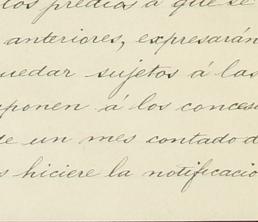 los predios á que se
anteriores, expresarán
uedar sujetos á las
ponen á los conces
de un mes contado d
s hiciere la notificacio